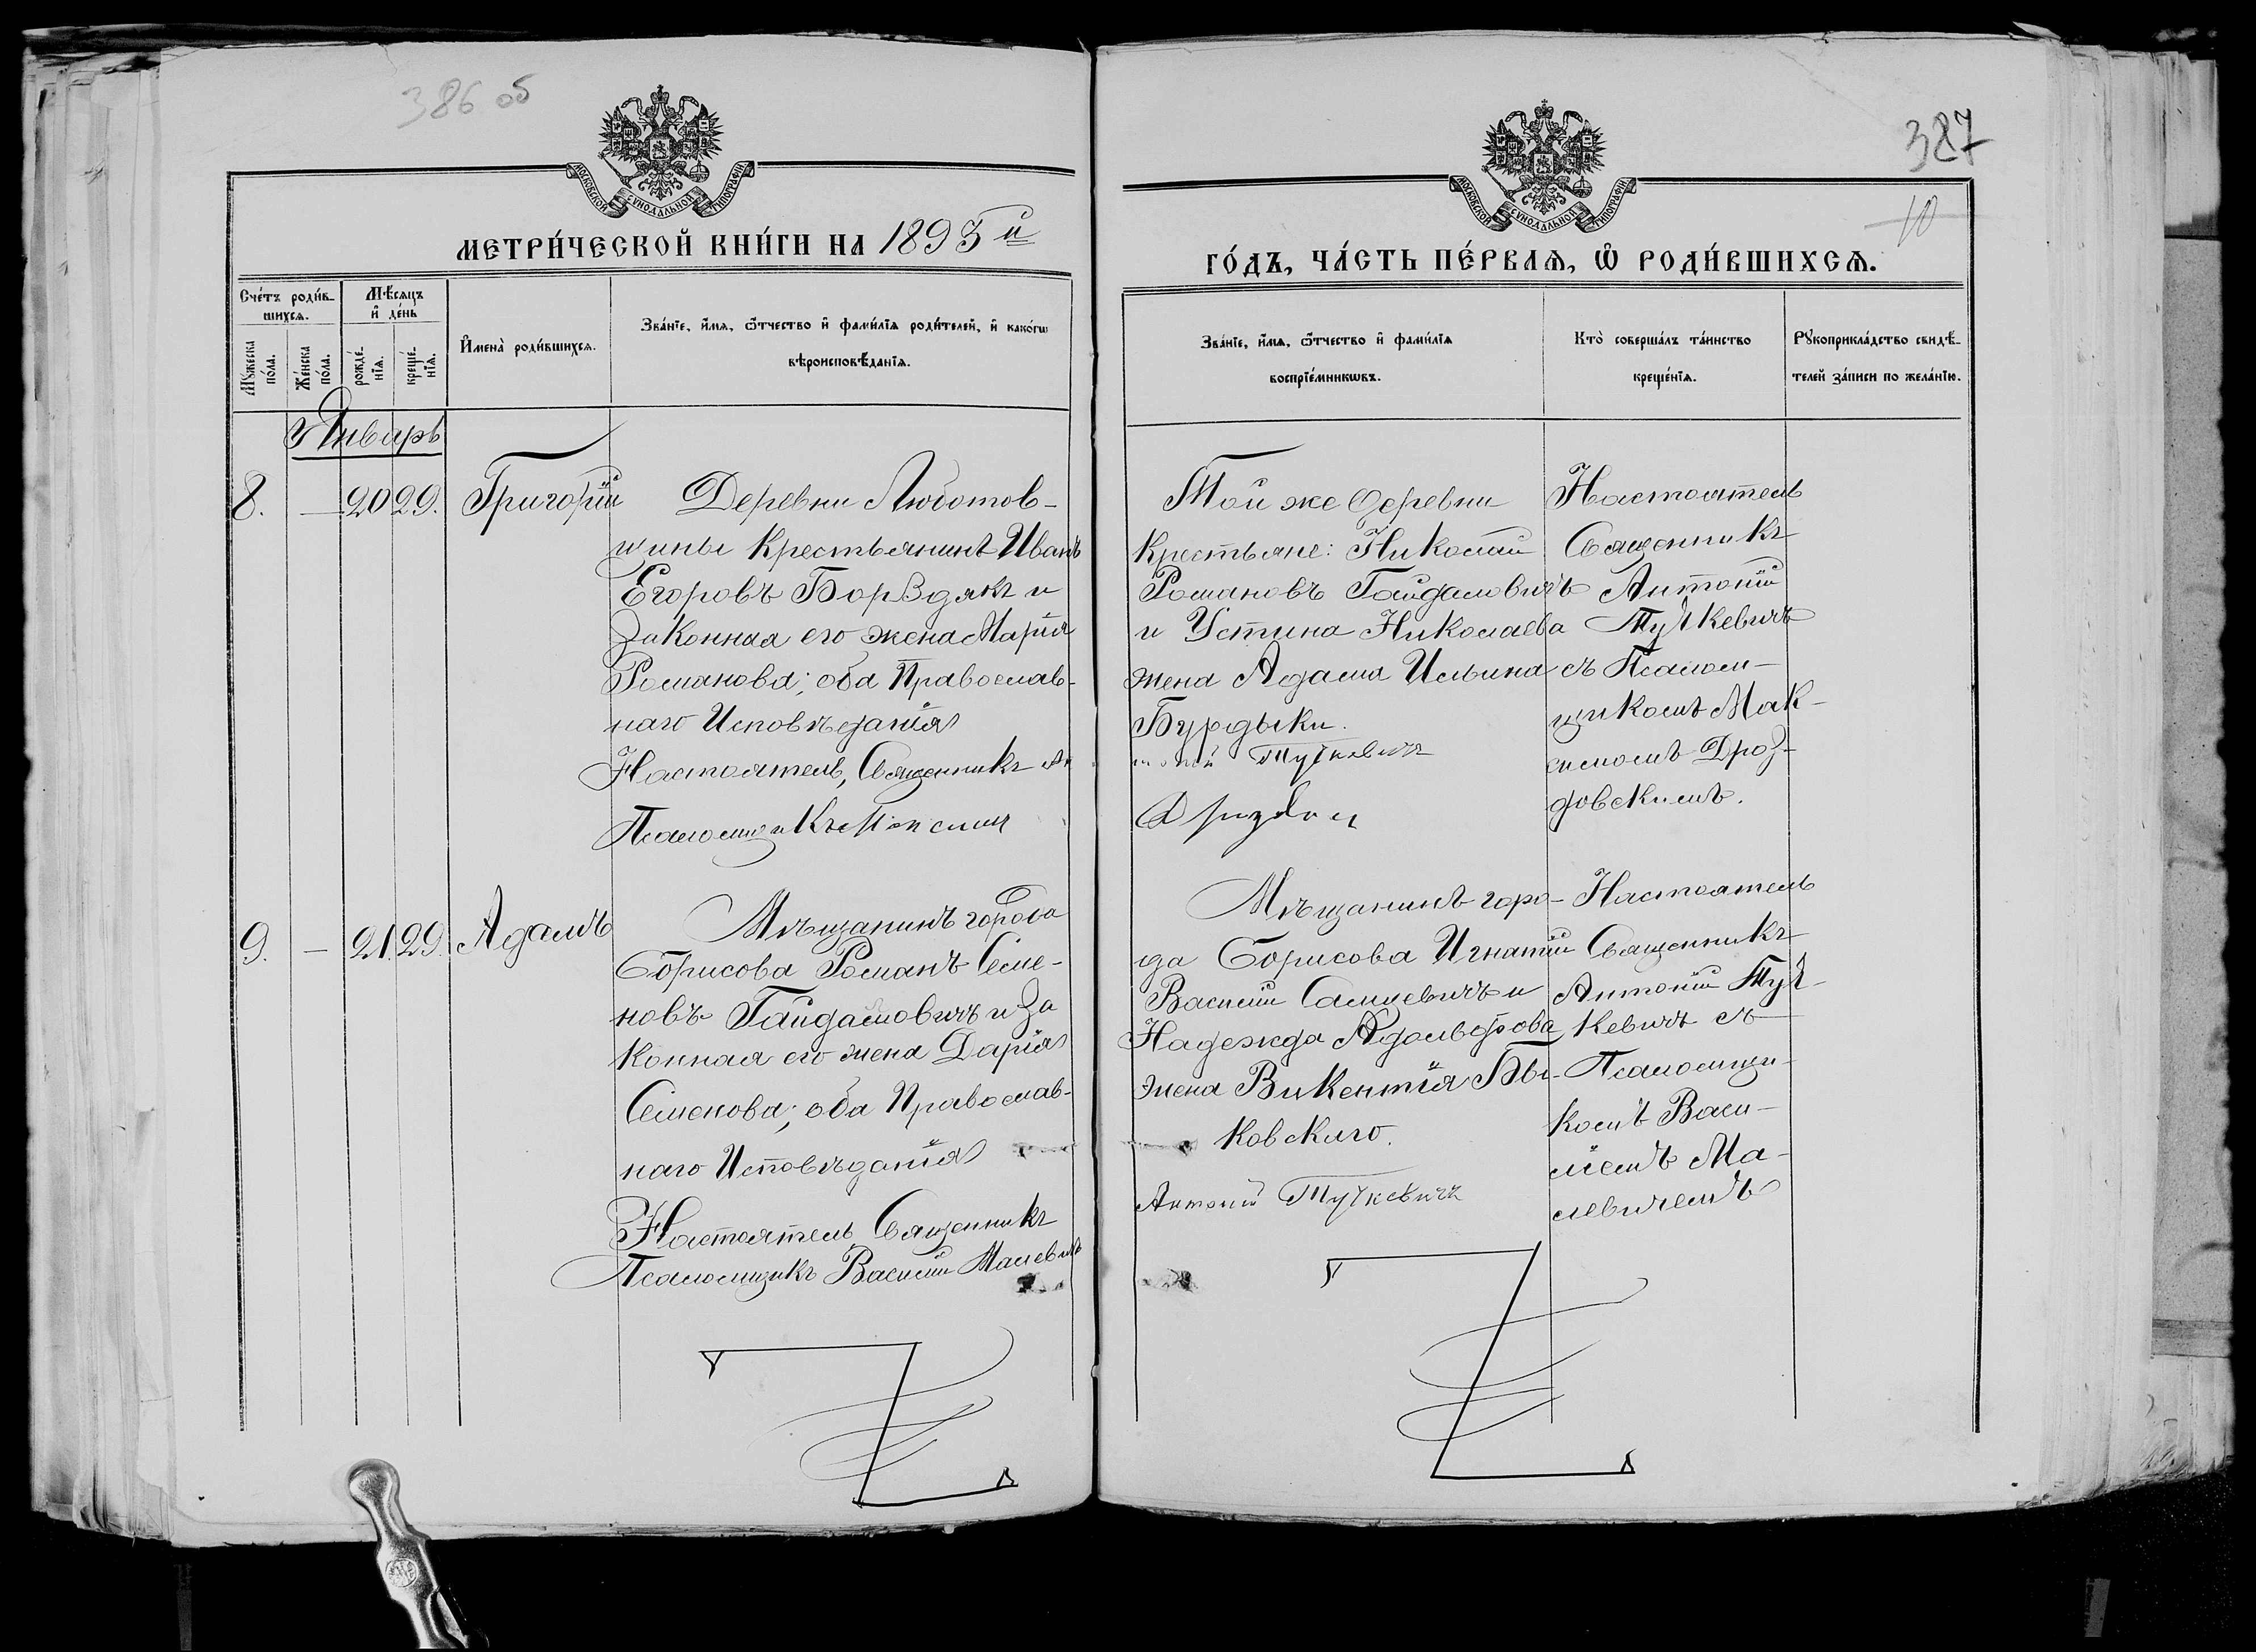 386 об
МОСКОВСКОЙ СѴНОДАЛЬНОЙ ТИПОГРАФІИ
МЕТРИ́ЧЕСКОЙ КНИ́ГИ НА 1893 й
Сче́тъ роди́в-
шихся.
Мѣ́сяцъ
и҆ де́нь
Мꙋ́жеска
по́ла.
Же́нска
по́ла.
рожде́-
нїя.
креще́-
нїя.
И҆мена̀ роди́вшихся.
Зва́нїе, и҆́мя, ѻ҆́тчество и҆ фами́лїя роди́телей, и҆ како́гѡ
вѣроисповѣ́данїя.
Январь
8. — 20 29. Григорій
Деревни Люботов-
щины Крестьянинъ Иванъ
Егоровъ Борздякъ и
Законная его жена Марія
Романова; оба Православ-
наго Исповѣданія
Настоятель, Священникъ Ан
Псаломщикъ Максимъ
9. — 21. 29. Адамъ
Мѣщанинъ города
Борисова Романъ Семе-
новъ Гайдамовичъ и За
конная его жена Дарія
Семенова; оба Православ-
наго Исповѣданія
Настоятель Священникъ
Псаломщикъ Василій Малевичъ
387
10
МОСКОВСКОЙ СѴНОДАЛЬНОЙ ТИПОГРАФІИ
ГО́ДЪ, ЧА́СТЬ ПЕ́РВАЯ, Ѡ҆ РОДИ́ВШИХСЯ.
Зва́нїе, и҆́мя, ѻ҆́тчество и҆ фами́лїя
воспрїе́мникѡвъ.
Кто̀ соверша́лъ та́инство
креще́нїя.
Рꙋкоприкла́дство свидѣ́-
телей за́писи по жела́нїю.
Той же деревни
Крестьяне: Николай
Романовъ Гайдамовичъ
и Устина Николаева
жена Адама Ильина
Бурдыки.
тоній Тучкевичъ
Дрозdov
Настоятель
Священникъ
Антоній
Тучкевичъ
съ Псалом-
щикомъ Мак-
симомъ Дроз-
довскимъ.
Мѣщанинъ горо-
да Борисова Игнатій
Василій Самцевичъ и
Надежда Адольфова
жена Викентія Бы-
ковскаго.
Антоній Тучкевичъ
Настоятель
Священникъ
Антоній Туч-
кевичъ съ
Псаломщи-
комъ Васи-
ліемъ Ма-
левичемъ